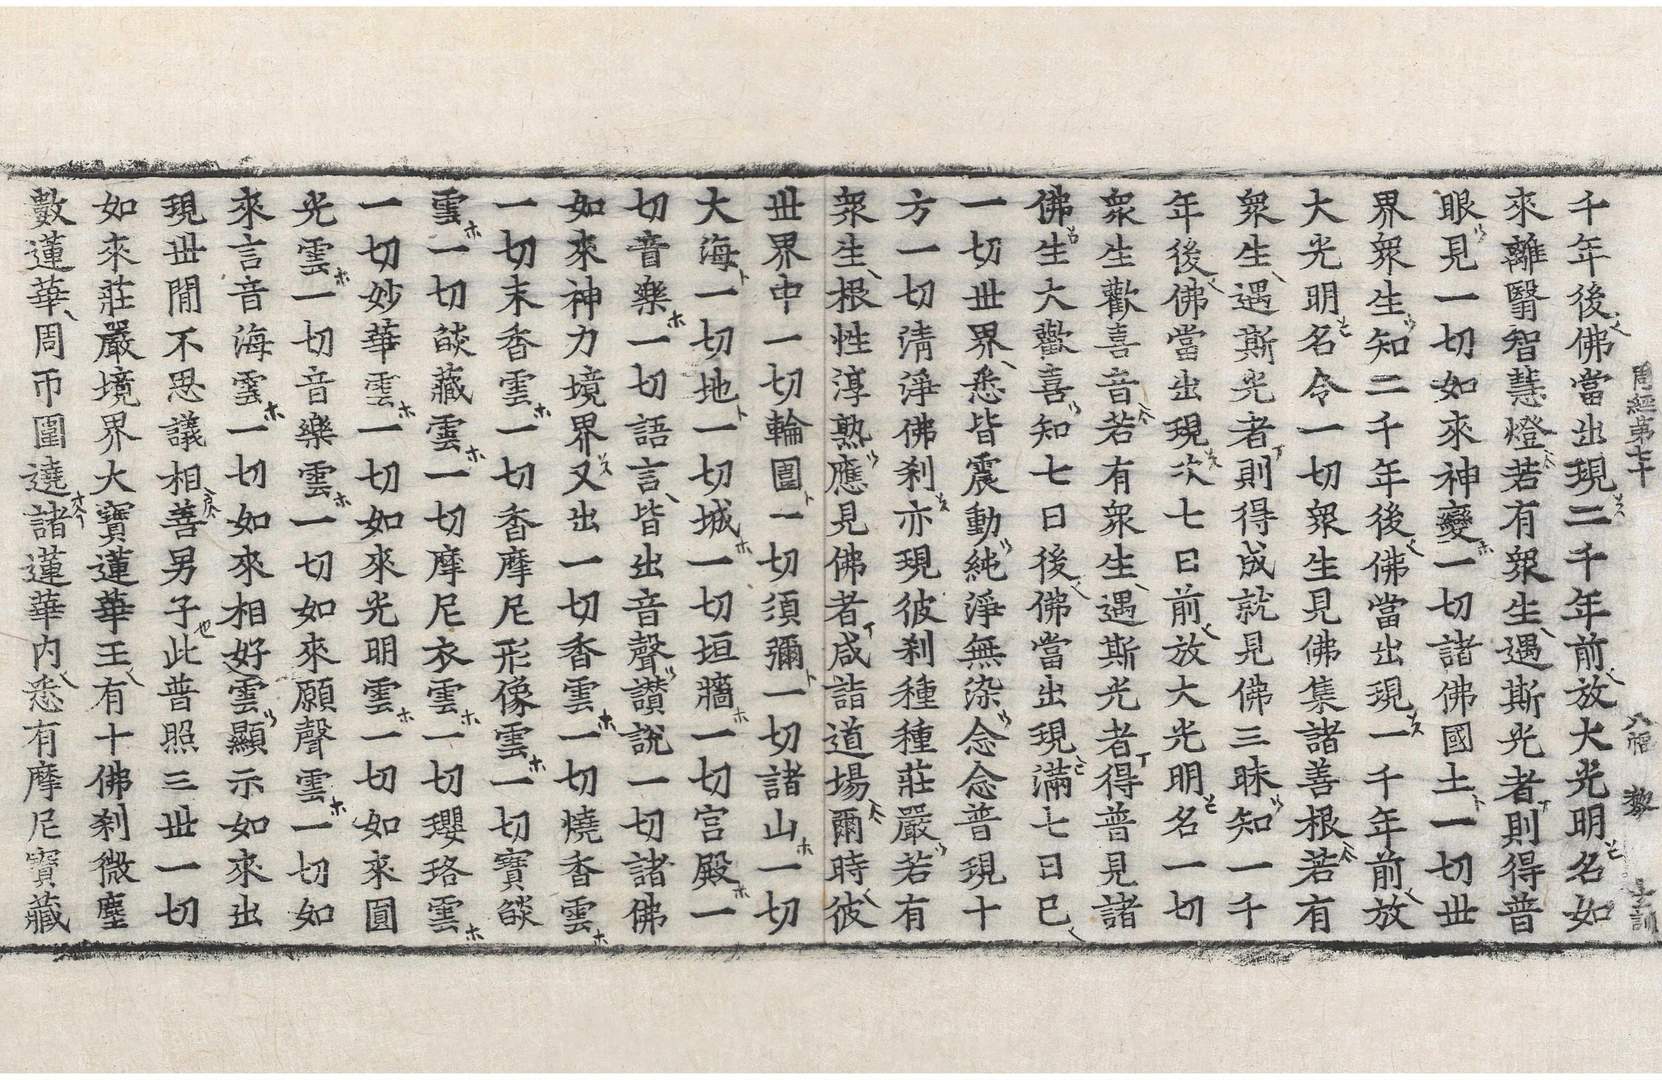 周經第七十 八幅 黎 士訓
千年後佛當出現二千年前放大光明名如
來離翳智慧燈若有衆生遇斯光者則得普
眼見一切如來神變一切諸佛國土一切世
界衆生知二千年後佛當出現一千年前放
大光明名令一切衆生見佛集諸善根若有
衆生遇斯光者則得成就見佛三昧知一千
年後佛當出現次七日前放大光明名一切
衆生歡喜音若有衆生遇斯光者得普見諸
佛生大歡喜知七日後佛當出現滿七日已
一切世界悉皆震動純淨無染念念普現十
方一切清淨佛刹亦現彼刹種種莊嚴若有
衆生根性淳熟應見佛者咸詣道場爾時彼
世界中一切輪圍一切須彌一切諸山一切
大海一切地一切城一切垣牆一切宮殿一
切音樂一切語言皆出音聲讃說一切諸佛
如來神力境界又出一切香雲一切燒香雲
一切末香雲一切香摩尼形像雲一切寶焰
雲一切焰藏雲一切摩尼衣雲一切瓔珞雲
一切妙華雲一切如來光明雲一切如來圓
光雲一切音樂雲一切如來願聲雲一切如
來言音海雲一切如來相好雲顯示如來出
現世閒不思議相善男子此普照三世一切
如來莊嚴境界大寶蓮華王有十佛刹微塵
數蓮華周帀圍遶諸蓮華內悉有摩尼寶藏